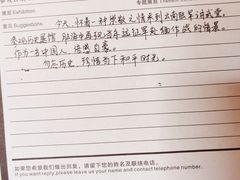 展览 Exhibition
建议 Suggestions
今天，怀着一种崇敬之情来到云南陆军讲武堂，
参观历史展馆，脑海中再现当年远征军赴缅作战的情景。
作为一名中国人，倍感自豪。
勿忘历史，珍惜当下和平时光。
如果您希望我们做出回复，请留下您的姓名及联络电话。
If you want reply,please leave us your name and contact telephone number.